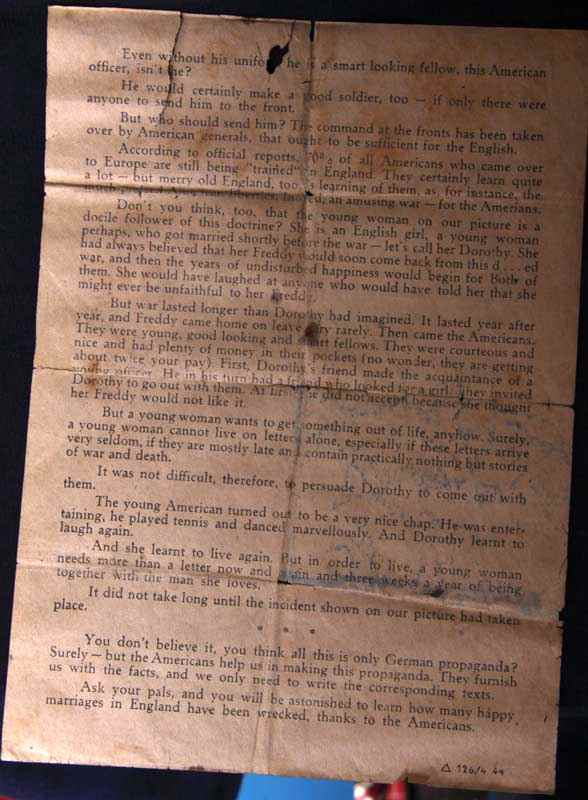 Even without his uniform he is a smart looking fellow, this American
officer, isn't he?
He would certainly make a good soldier, too — if only there were
anyone to send him to the front.
But who should send him? The command at the fronts has been taken
over by American generals, that ought to be sufficient for the English.
According to official reports, 70% of all Americans who came over
to Europe are still being "trained" in England. They certainly learn quite
a lot — but merry old England, too is learning of them, as, for instance, the
an amusing war — for the Americans.
Don't you think, too, that the young woman on our picture is a
docile follower of this doctrine? She is an English girl, a young woman
perhaps, who got married shortly before the war — let's call her Dorothy. She
had always believed that her Freddy would soon come back from this d . . . ed
war, and then the years of undisturbed happiness would begin for both of
them. She would have laughed at anyone who would have told her that she
might ever be unfaithful to her Freddy.
But war lasted longer than Dorothy had imagined. It lasted year after
year, and Freddy came home on leave very rarely. Then came the Americans.
They were young, good looking and smart fellows. They were courteous and
nice and had plenty of money in their pockets (no wonder, they are getting
about twice your pay). First, Dorothy's friend made the acquaintance of a
young officer. He in his turn had a friend who looked for a girl. They invited
Dorothy to go out with them. At first she did not accept because she thought
her Freddy would not like it.
But a young woman wants to get something out of life, anyhow. Surely,
a young woman cannot live on letters alone, especially if these letters arrive
very seldom, if they are mostly late and contain practically nothing but stories
of war and death.
It was not difficult, therefore, to persuade Dorothy to come out with
them.
The young American turned out to be a very nice chap. He was enter-
taining, he played tennis and danced marvellously. And Dorothy learnt to
laugh again.
And she learnt to live again. But in order to live, a young woman
needs more than a letter now and again and three weeks a year of being
together with the man she loves.
It did not take long until the incident shown on our picture had taken
place.
* * *
You don't believe it, you think all this is only German propaganda?
Surely — but the Americans help us in making this propaganda. They furnish
us with the facts, and we only need to write the corresponding texts.
Ask your pals, and you will be astonished to learn how many happy
marriages in England have been wrecked, thanks to the Americans.
Δ 126/4 44